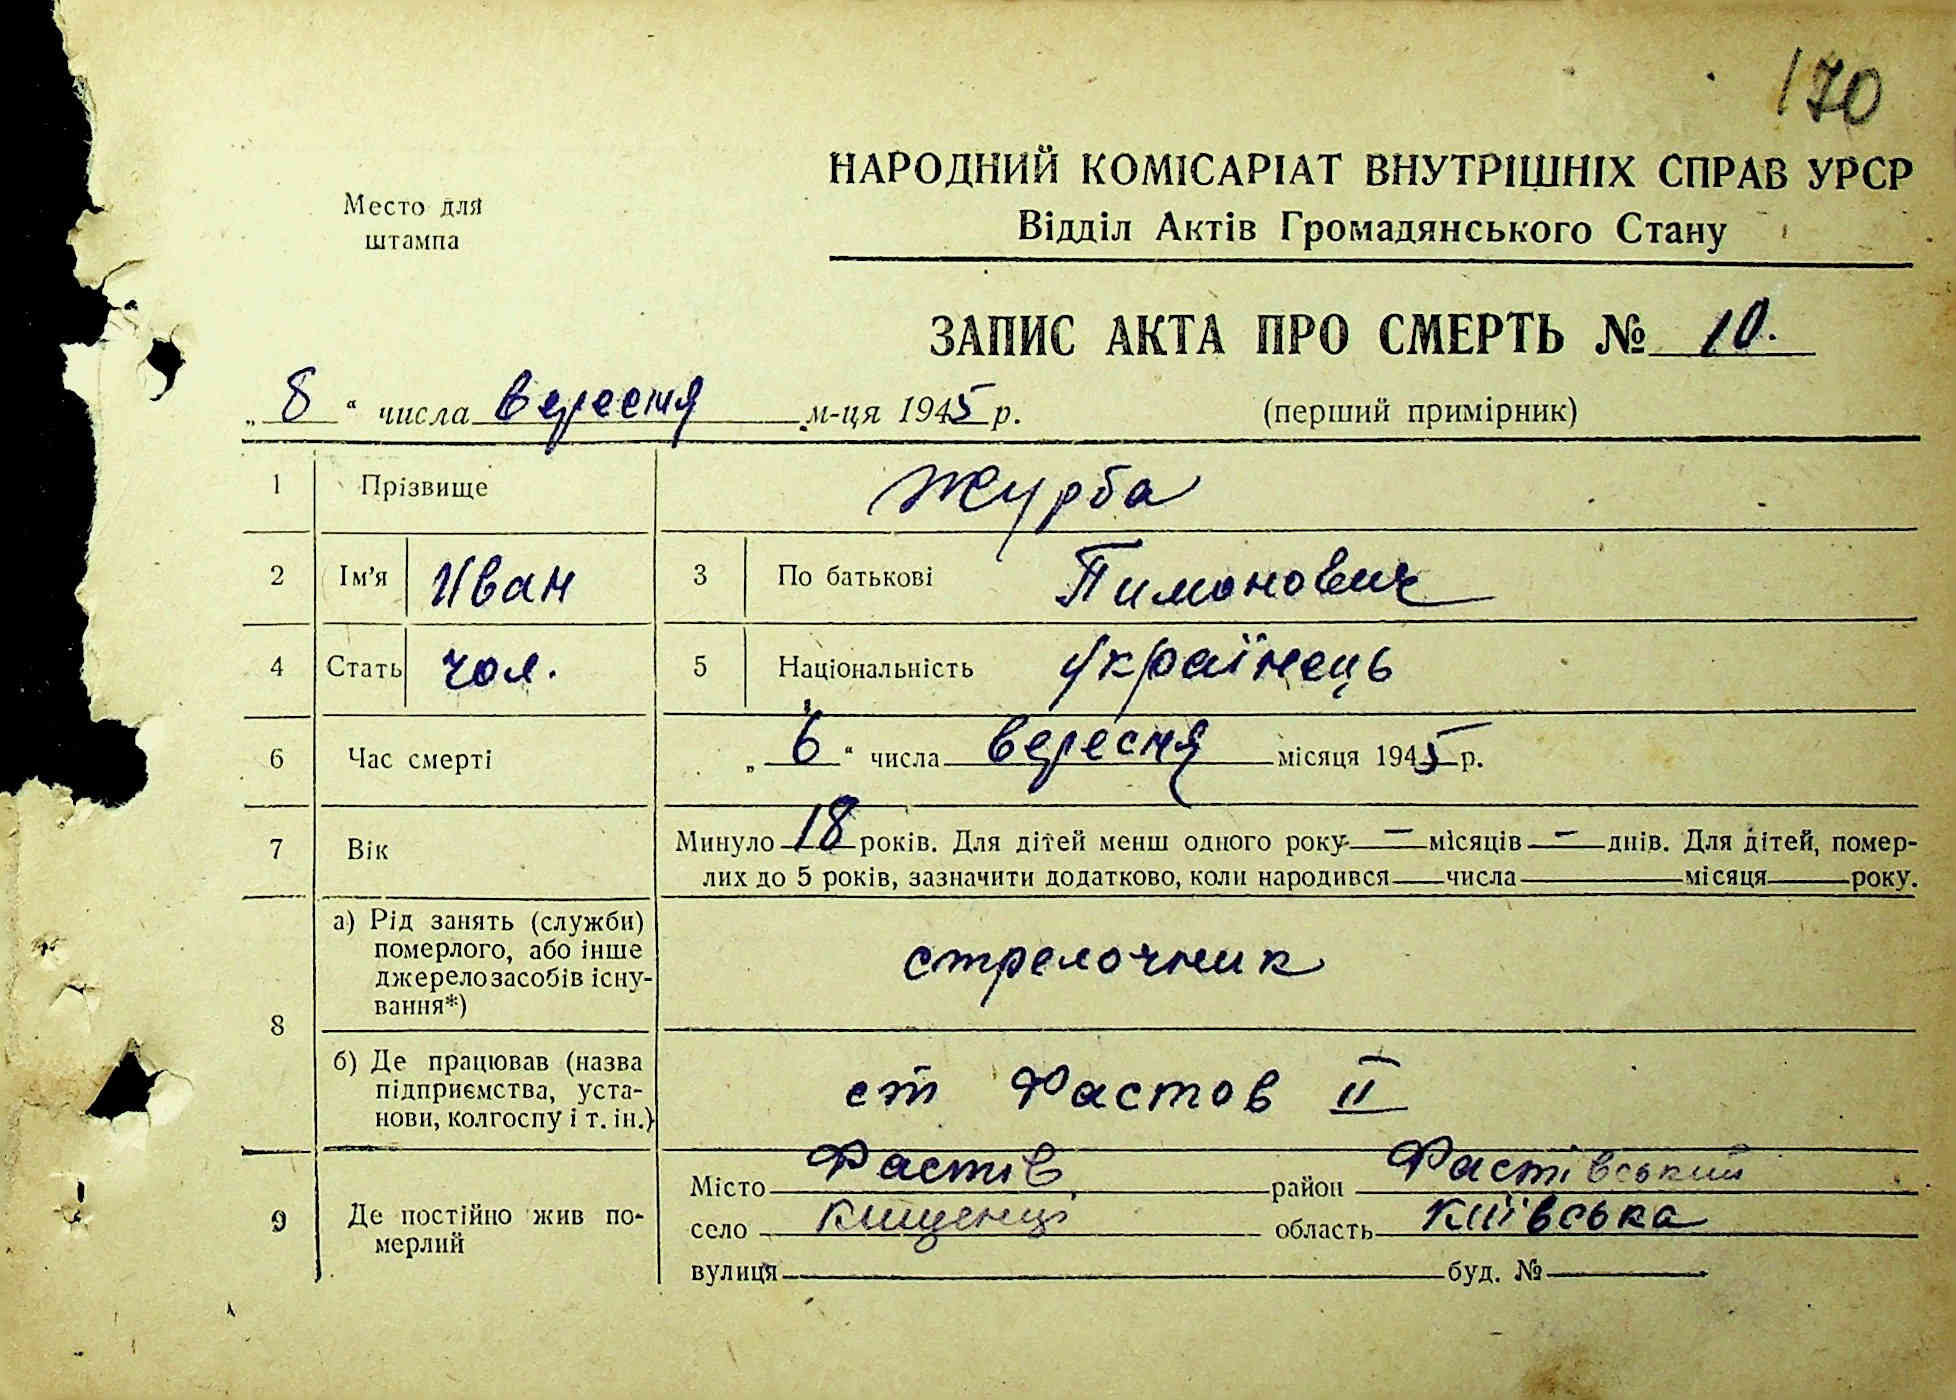 170
НАРОДНИЙ КОМІСАРІАТ ВНУТРІШНІХ СПРАВ УРСР
Место для
штампа
Відділ Актів Громадянського Стану
ЗАПИС АКТА ПРО СМЕРТЬ № 10.
„ 8 “ числа вересня м-ця 1945 р. (перший примірник)
1 Прізвище Журба
2 Ім’я Иван 3 По батькові Пимонович
4 Стать чол. 5 Національність українець
6 Час смерті „ 6 “ числа вересня місяця 1945 р.
7 Вік Минуло 18 років. Для дітей менш одного року — місяців — днів. Для дітей, помер-
лих до 5 років, зазначити додатково, коли народився числа місяця року.
8 а) Рід занять (служби)
померлого, або інше
джерело засобів існу-
вання*)
стрелочник
б) Де працював (назва
підприємства, уста-
нови, колгоспу і т. ін.)
ст Фастов II
9 Де постійно жив по-
мерлий
Місто Фастів, район Фастівський
село Кищенці область Київська
вулиця буд. №